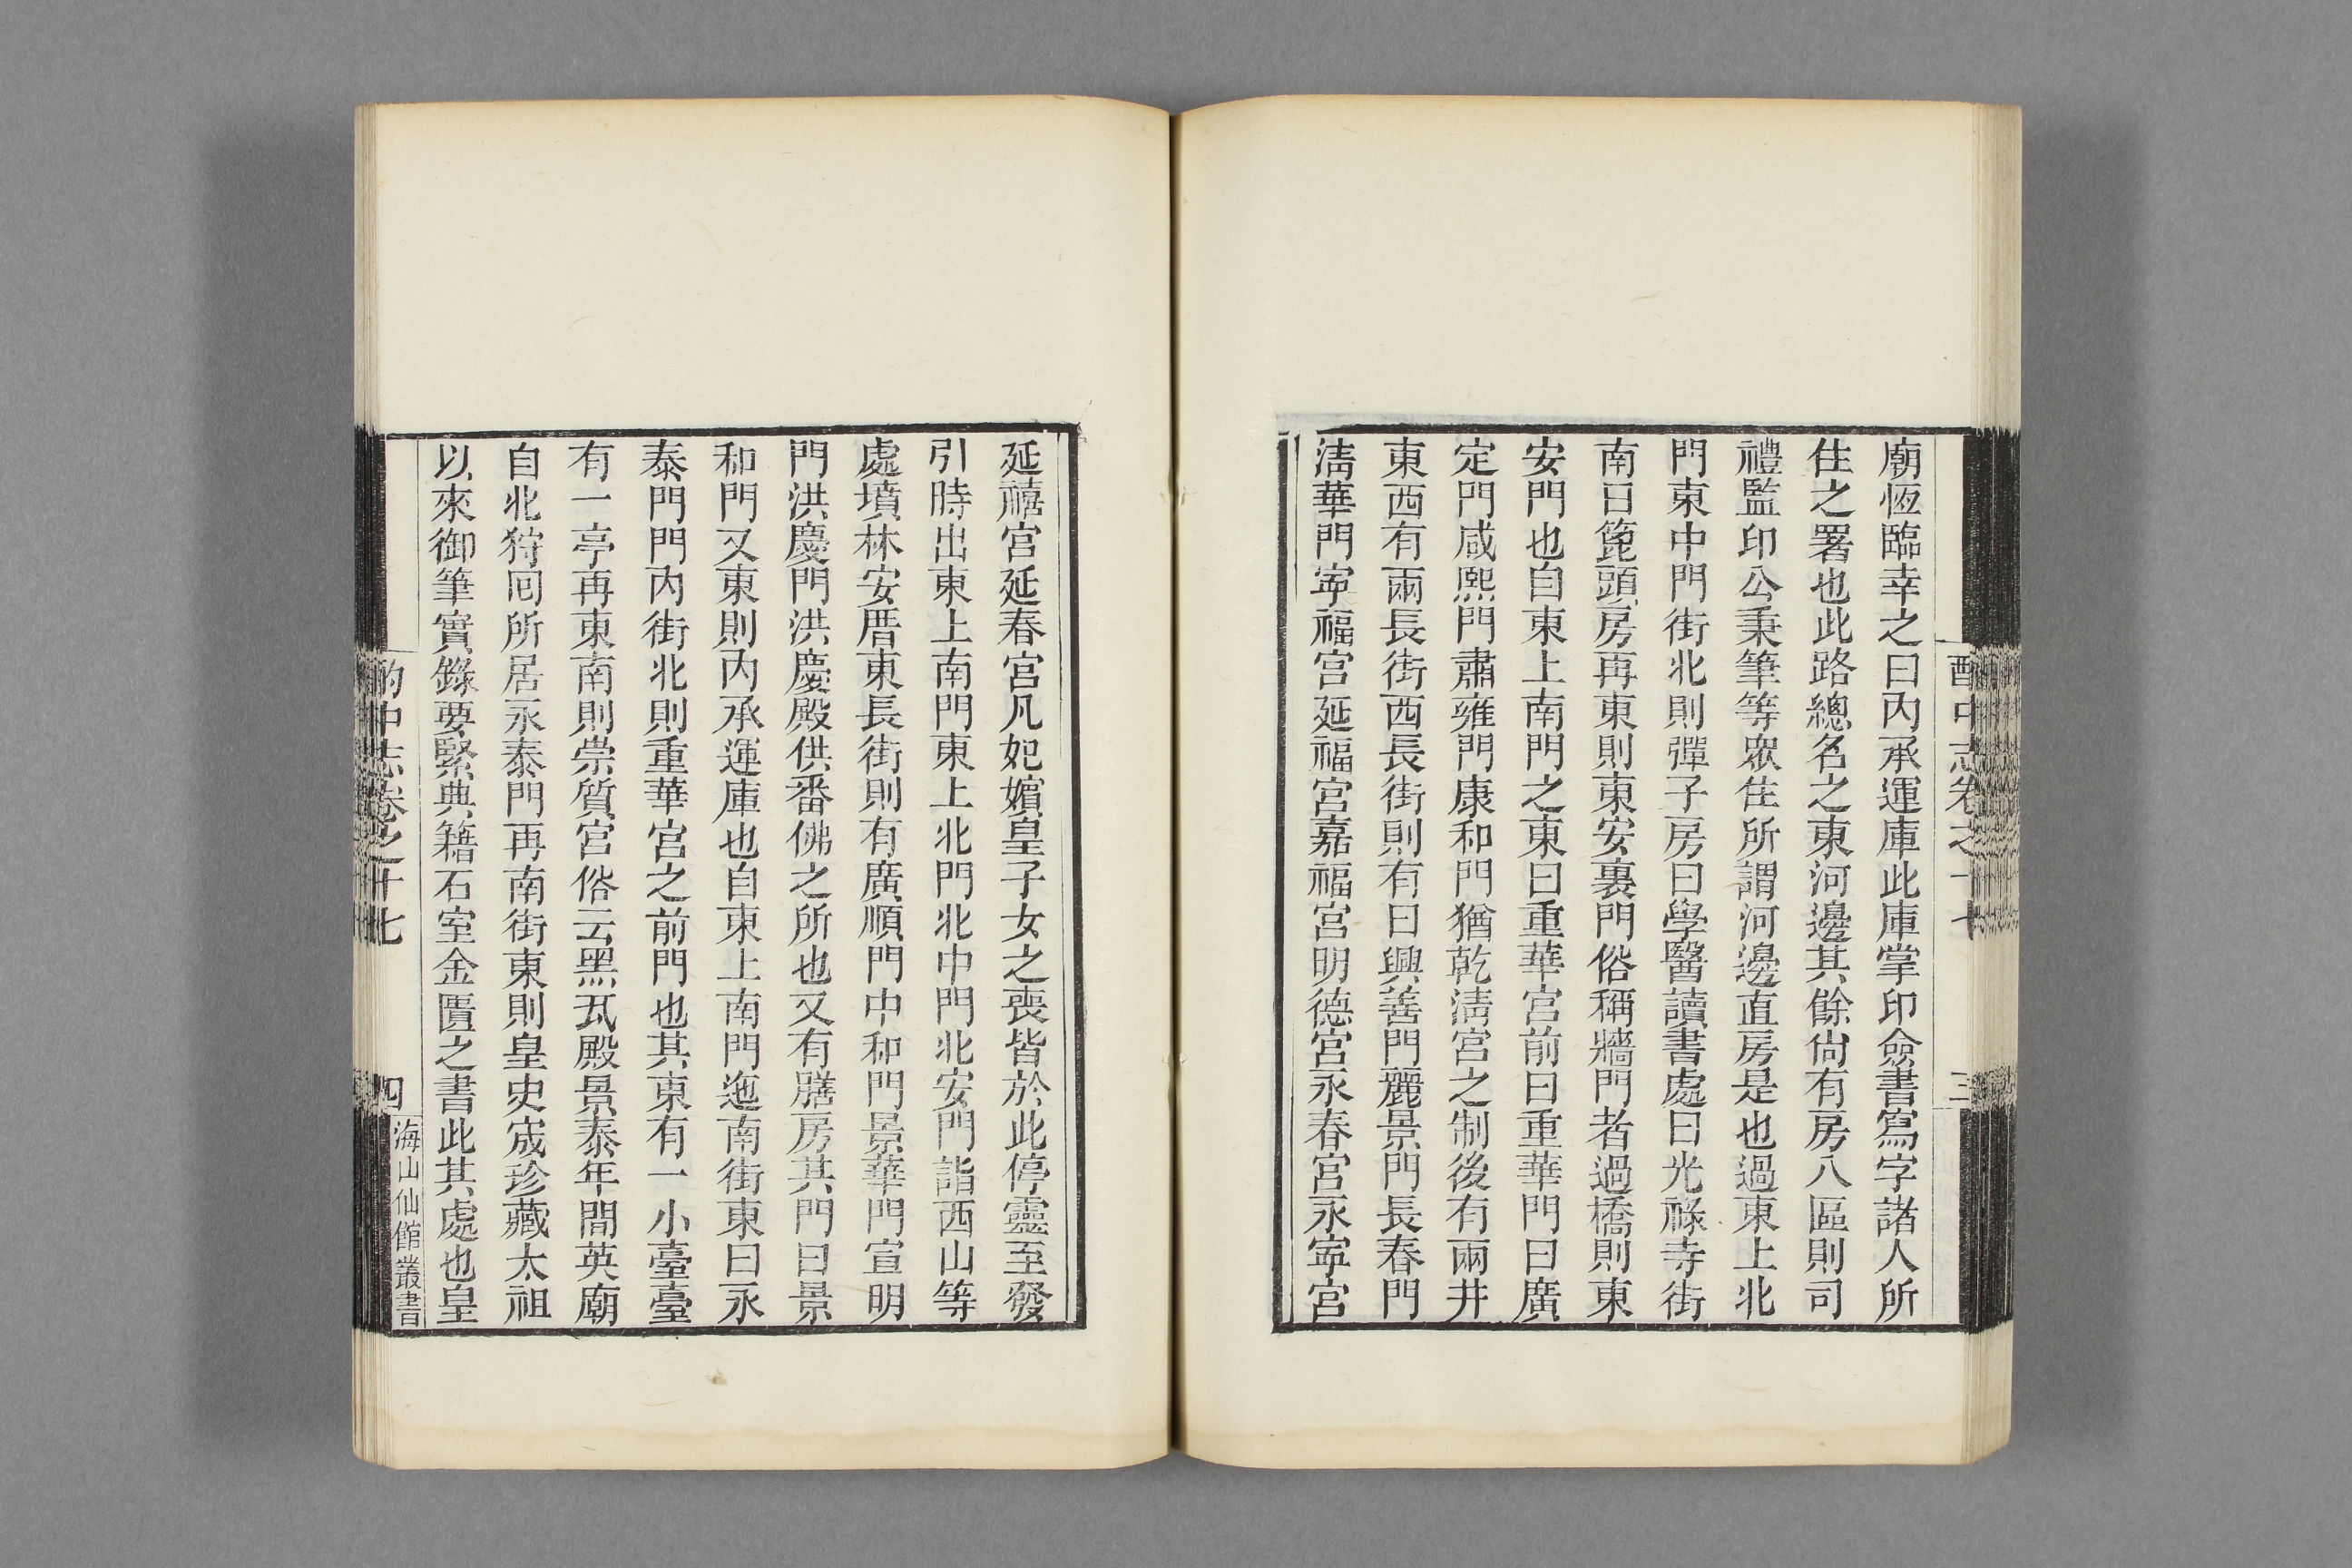 酌中志卷之十七
三
廟恆臨幸之曰内承運庫此庫掌印僉書寫字諸人所
住之署也此路總名之東河邊其餘尙有房八區則司
禮監印公秉筆等眾住所謂河邊直房是也過東上北
門東中門街北則彈子房曰學醫讀書處曰光祿寺街
南曰篦頭房再東則東安裏門俗稱牆門者過橋則東
安門也自東上南門之東曰重華宮前曰重華門曰廣
定門咸熙門肅雍門康和門猶乾清宮之制後有兩井
東西有兩長街西長街則有曰興善門麗景門長春門
清華門寧福宮延福宮嘉福宮明德宮永春宮永寧宮
延禧宮延春宮凡妃嬪皇子女之喪皆於此停靈至發
引時出東上南門東上北門北中門北安門詣西山等
處墳林安厝東長街則有廣順門中和門景華門宣明
門洪慶門洪慶殿供番佛之所也又有膳房其門曰景
和門又東則内承運庫也自東上南門迤南街東曰永
泰門門内街北則重華宮之前門也其東有一小臺臺
有一亭再東南則崇質宮俗云黑瓦殿景泰年間英廟
自北狩回所居永泰門再南街東則皇史宬珍藏太祖
以來御筆實錄要緊典籍石室金匱之書此其處也皇
酌中志卷之十七
四
海山仙館叢書